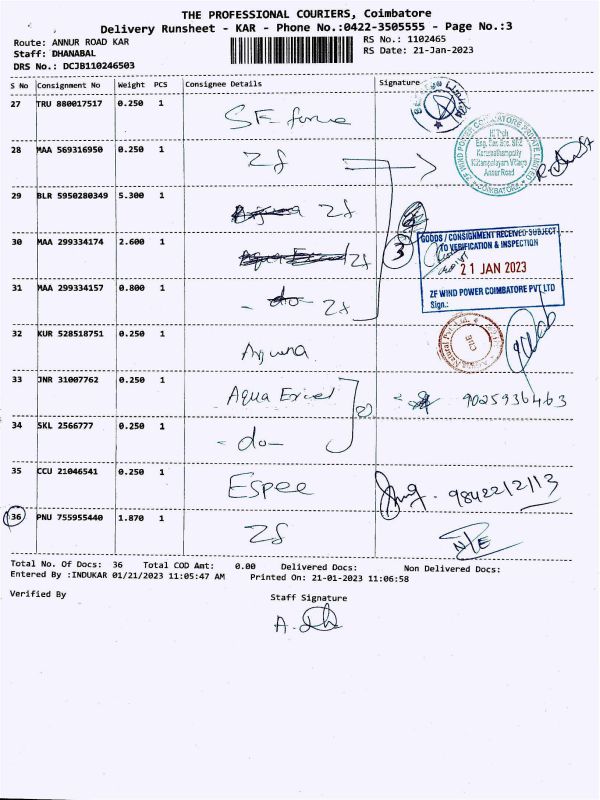 THE PROFESSIONAL COURIERS, Coimbatore
Delivery Runsheet - KAR - Phone No.:0422-3505555 - Page No.:3
Route: ANNUR ROAD KAR
RS No.: 1102465
Staff: DHANABAL
RS Date: 21-Jan-2023
DRS No.: DCJB110246503
S No Consignment No Weight PCS Consignee Details Signature
27 TRU 880017517 0.250 1
28 MAA 569316950 0.250 1 Zf
ZF WIND POWER COIMBATORE PRIVATE LIMITED
Karumathampatty
Kittampalayam Village
Annur Road
COIMBATORE
29 BLR 5950280349 5.300 1 Zf
30 MAA 299334174 2.600 1 Zf 3
GOODS / CONSIGNMENT RECEIVED SUBJECT
TO VERIFICATION & INSPECTION
21 JAN 2023
ZF WIND POWER COIMBATORE PVT LTD
Sign.:
31 MAA 299334157 0.800 1 -do- Zf
32 KUR 528518751 0.250 1 Arjuna
33 JNR 31007762 0.250 1 Aqua 2 9025936463
34 SKL 2566777 0.250 1 -do-
35 CCU 21046541 0.250 1 Espee 9842212113
36 PNU 755955440 1.870 1 Zf
Total No. Of Docs: 36 Total COD Amt: 0.00 Delivered Docs: Non Delivered Docs:
Entered By :INDUKAR 01/21/2023 11:05:47 AM Printed On: 21-01-2023 11:06:58
Verified By Staff Signature